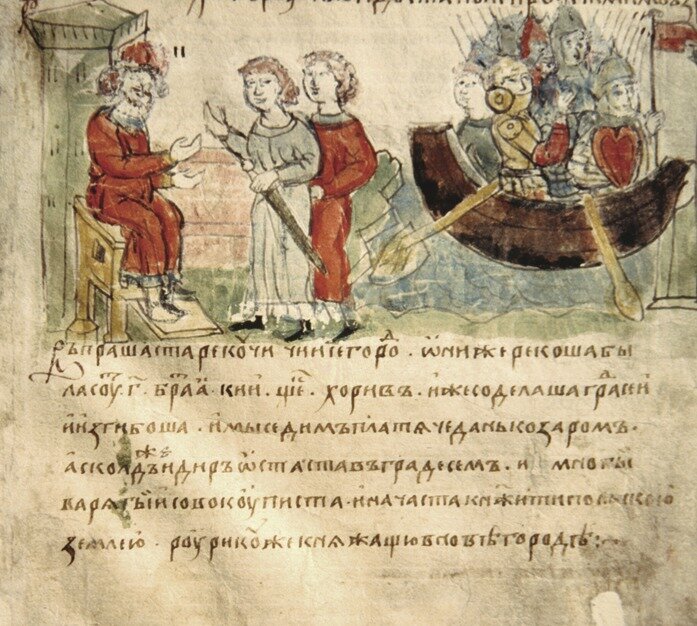 въпрашаста рекоучи чии се горо д҃ . ѡни же рекоша бы
ла соу г҃ . брат҃а . кии . щекъ . хоривъ . иже соделаша град҃ сеи
и изгибоша . и мы седимъ платяче дань козаром .
асколдъ же и диръ ѡстаста въ граде сем . и многы
варягы и совокоуписта . и начаста княжити полскою
землею . роурикоу же княжащю в новѣгородѣ :~